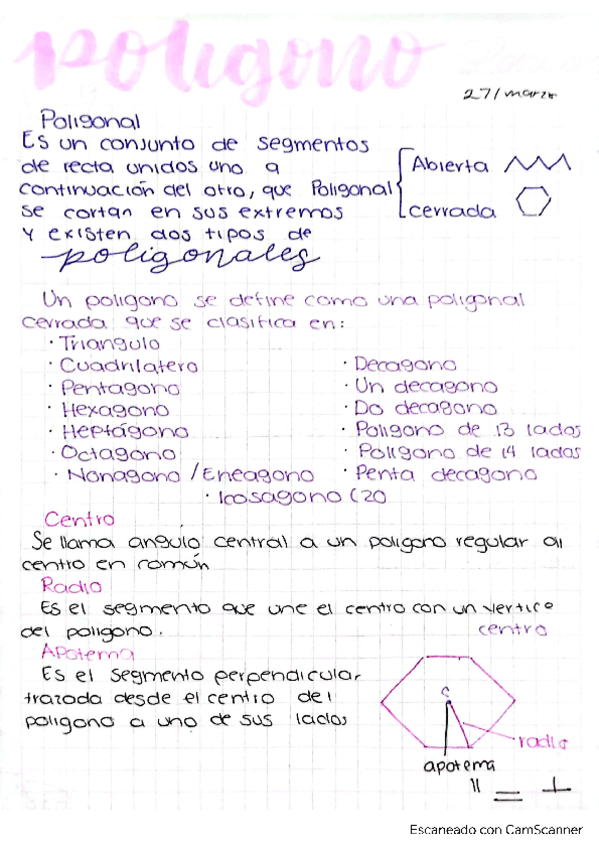 poligono
27/marzo
Poligonal
Es un conjunto de segmentos
de recta unidos uno a
continuación del otro, que
se cortan en sus extremos
y existen dos tipos de
poligonales
Poligonal
Abierta
cerrada
Un poligono se define como una poligonal
cerrada que se clasifica en:
· Triangulo
· Cuadrilatero
· Pentagono
· Hexagono
· Heptágono
· Octagono
· Nonagono / Eneagono
· Decagono
· Un decagono
· Do decagono
· Poligono de 13 lados
· Poligono de 14 lados
· Penta decagono
· Icosagono (20
Centro
Se llama angulo central a un poligono regular al
centro en común
Radio
Es el segmento que une el centro con un vertice
del poligono.
Apotema
Es el segmento perpendicular
trazada desde el centro del
poligono a uno de sus lados
centro
C
radio
apotema
Escaneado con CamScanner